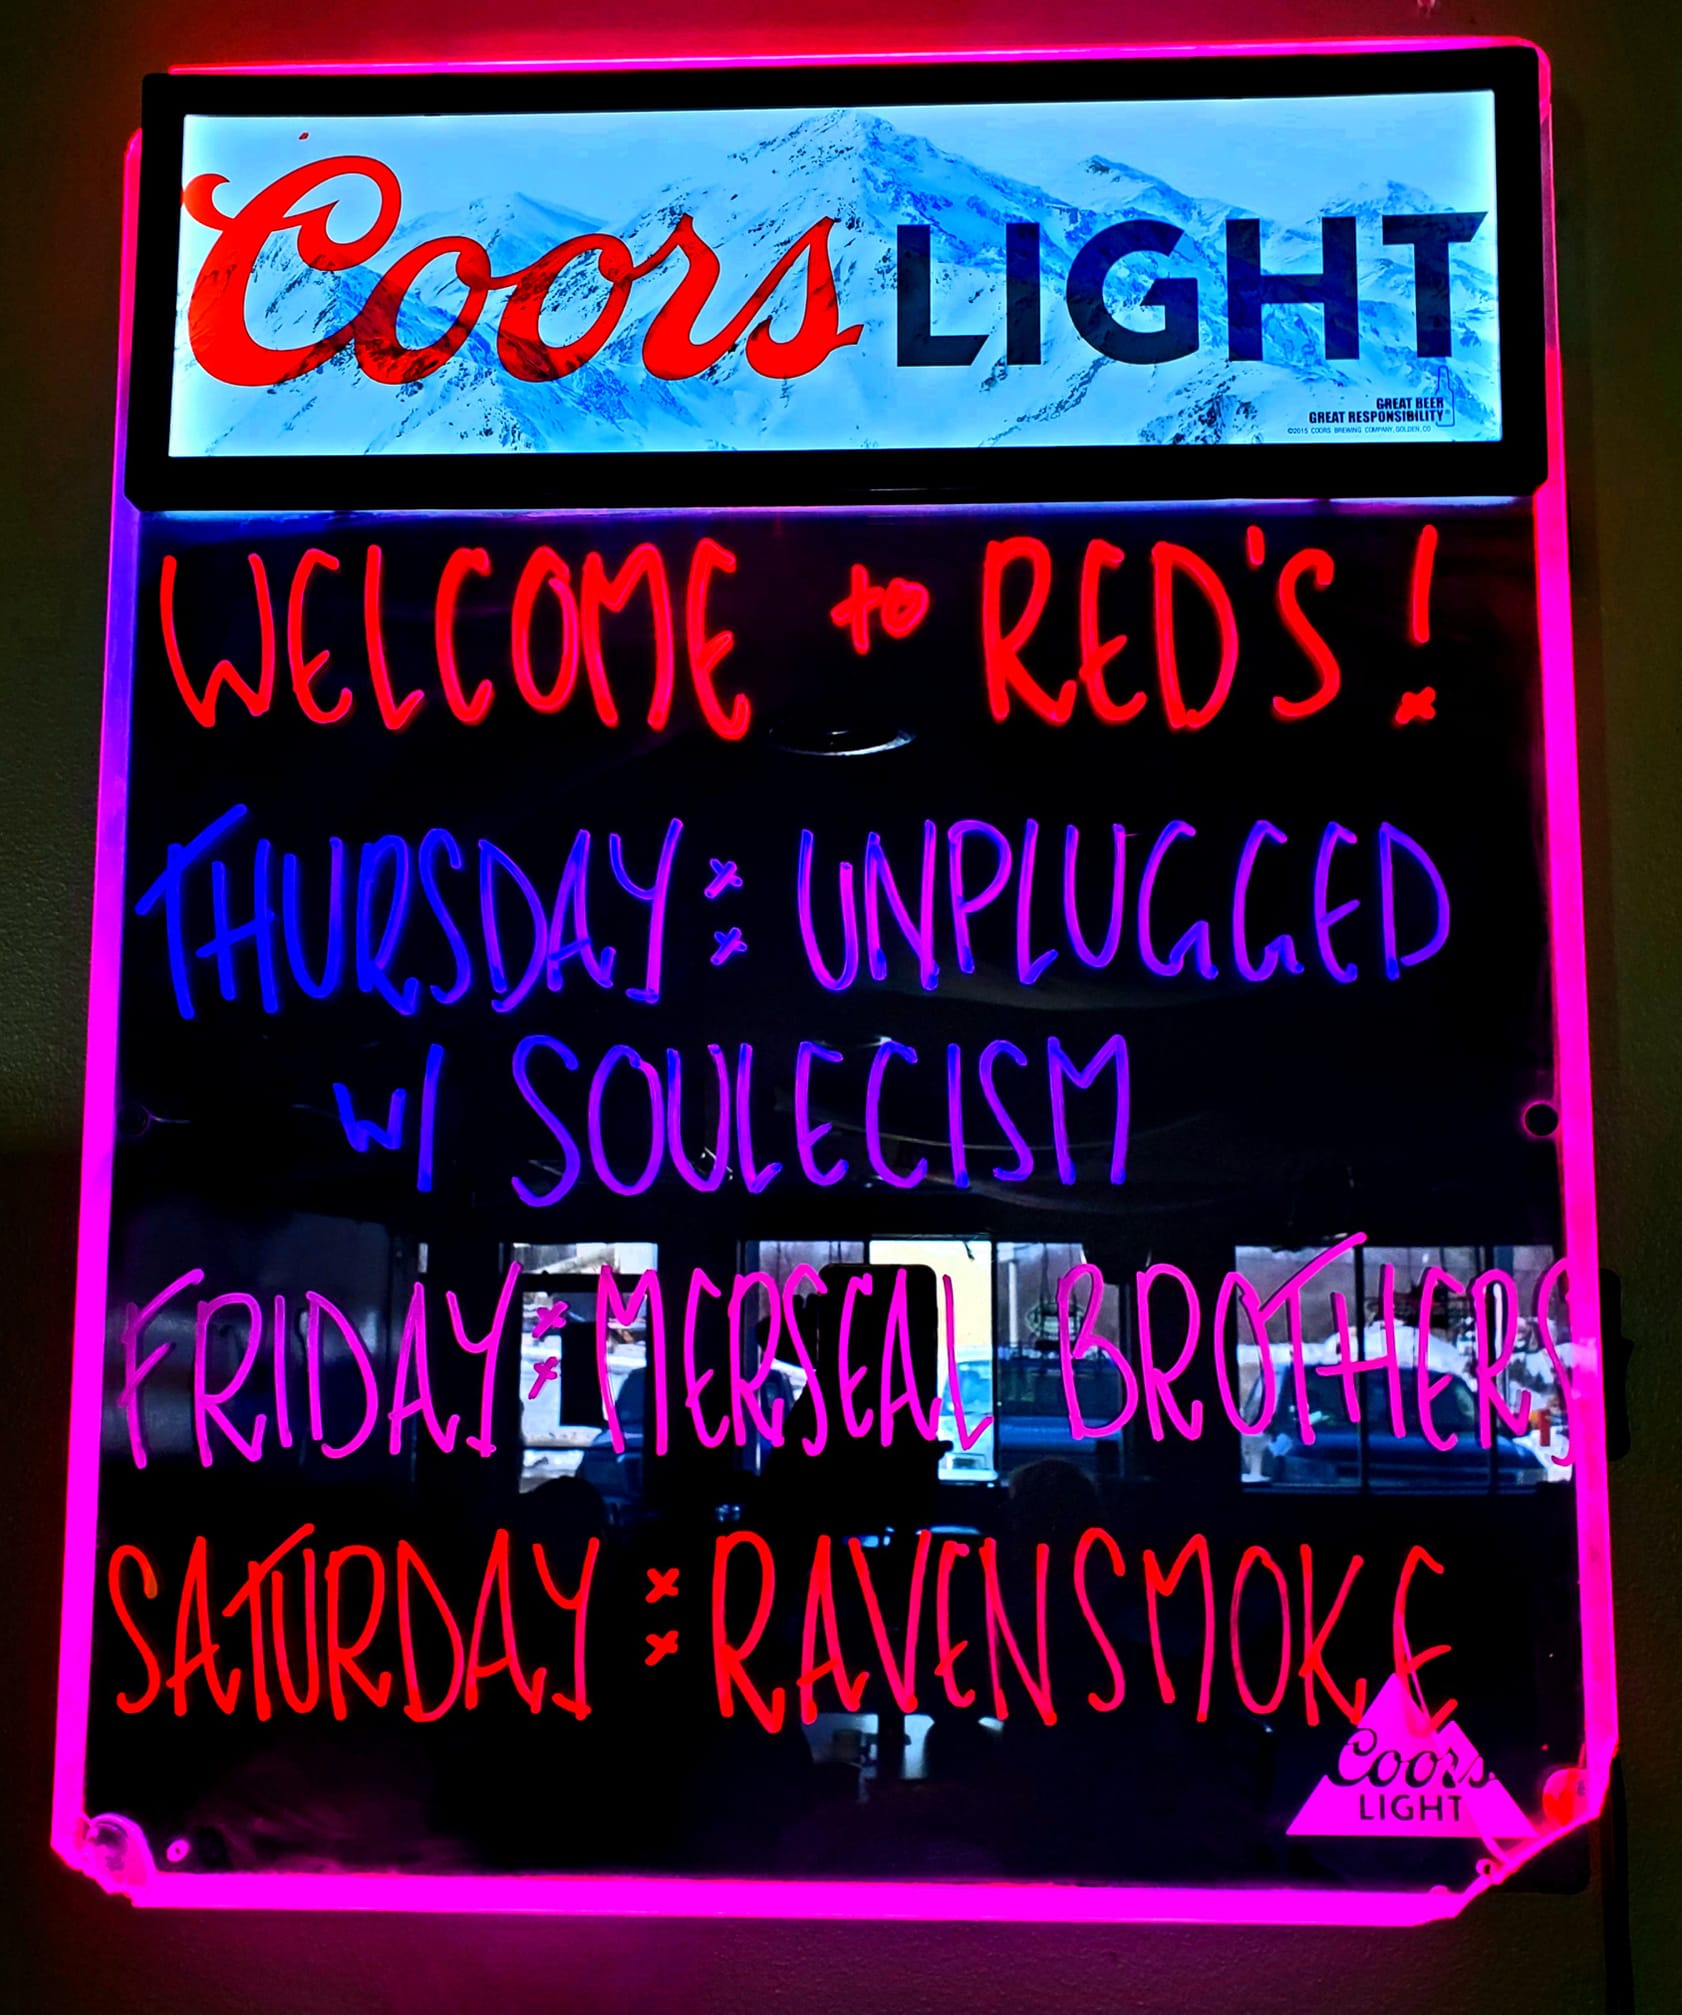 Coors LIGHT
GREAT BEER
GREAT RESPONSIBILITY®
©2015 COORS BREWING COMPANY, GOLDEN, CO
WELCOME to RED'S!
THURSDAY: UNPLUGGED
w/ SOULECISM
FRIDAY: MERSEAL BROTHERS
SATURDAY: RAVENSMOKE
Coors
LIGHT